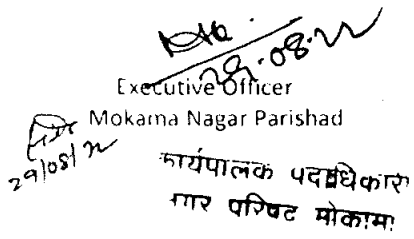 29.08.22
Executive Officer
Mokama Nagar Parishad
29/08/22
कार्यपालक पदाधिकारी
नगर परिषद मोकामा